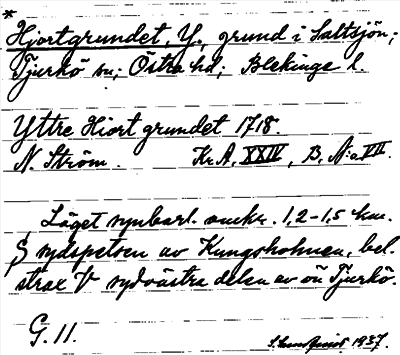 *
Hjortgrundet, Y., grund i Saltsjön;
Tjurkö sn; Östra hd; Blekinge l.
Yttre Hiort grundet 1718.
N. Ström. Kr.A. XXIV, B, N:o VII.
Läget synbarl. omkr. 1,2-1,5 km.
S sydspetsen av Kungsholmen, bel.
strax V sydvästra delen av ön Tjurkö.
G. 11.
1937.